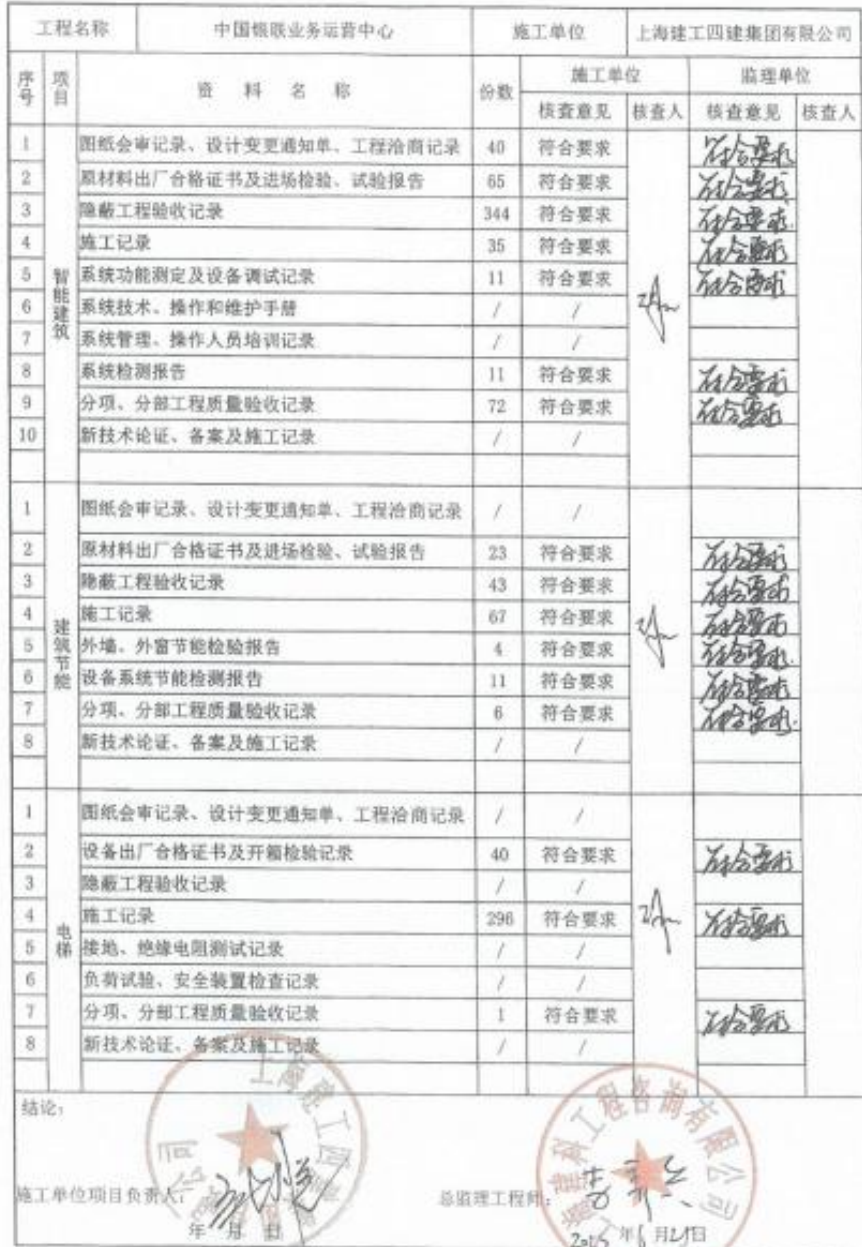 工程名称 中国银联业务运营中心 施工单位 上海建工四建集团有限公司
序号 项目 资料名称 份数 施工单位 监理单位
核查意见 核查人 核查意见 核查人
智能建筑
1 图纸会审记录、设计变更通知单、工程洽商记录 40 符合要求 符合要求
2 原材料出厂合格证书及进场检验、试验报告 65 符合要求 符合要求
3 隐蔽工程验收记录 344 符合要求 符合要求
4 施工记录 35 符合要求 符合要求
5 系统功能测定及设备调试记录 11 符合要求 符合要求
6 系统技术、操作和维护手册 / /
7 系统管理、操作人员培训记录 / /
8 系统检测报告 11 符合要求 符合要求
9 分项、分部工程质量验收记录 72 符合要求 符合要求
10 新技术论证、备案及施工记录 / /
建筑节能
1 图纸会审记录、设计变更通知单、工程洽商记录 / /
2 原材料出厂合格证书及进场检验、试验报告 23 符合要求 符合要求
3 隐蔽工程验收记录 43 符合要求 符合要求
4 施工记录 67 符合要求 符合要求
5 外墙、外窗节能检验报告 4 符合要求 符合要求
6 设备系统节能检测报告 11 符合要求 符合要求
7 分项、分部工程质量验收记录 6 符合要求 符合要求
8 新技术论证、备案及施工记录 / /
电梯
1 图纸会审记录、设计变更通知单、工程洽商记录 / /
2 设备出厂合格证书及开箱检验记录 40 符合要求 符合要求
3 隐蔽工程验收记录 / /
4 施工记录 296 符合要求 符合要求
5 接地、绝缘电阻测试记录 / /
6 负荷试验、安全装置检查记录 / /
7 分项、分部工程质量验收记录 1 符合要求 符合要求
8 新技术论证、备案及施工记录 / /
结论：
施工单位项目负责人： 总监理工程师：
年 月 日 年6月2日
上海建工四建
公司
建科工程咨询有限公司